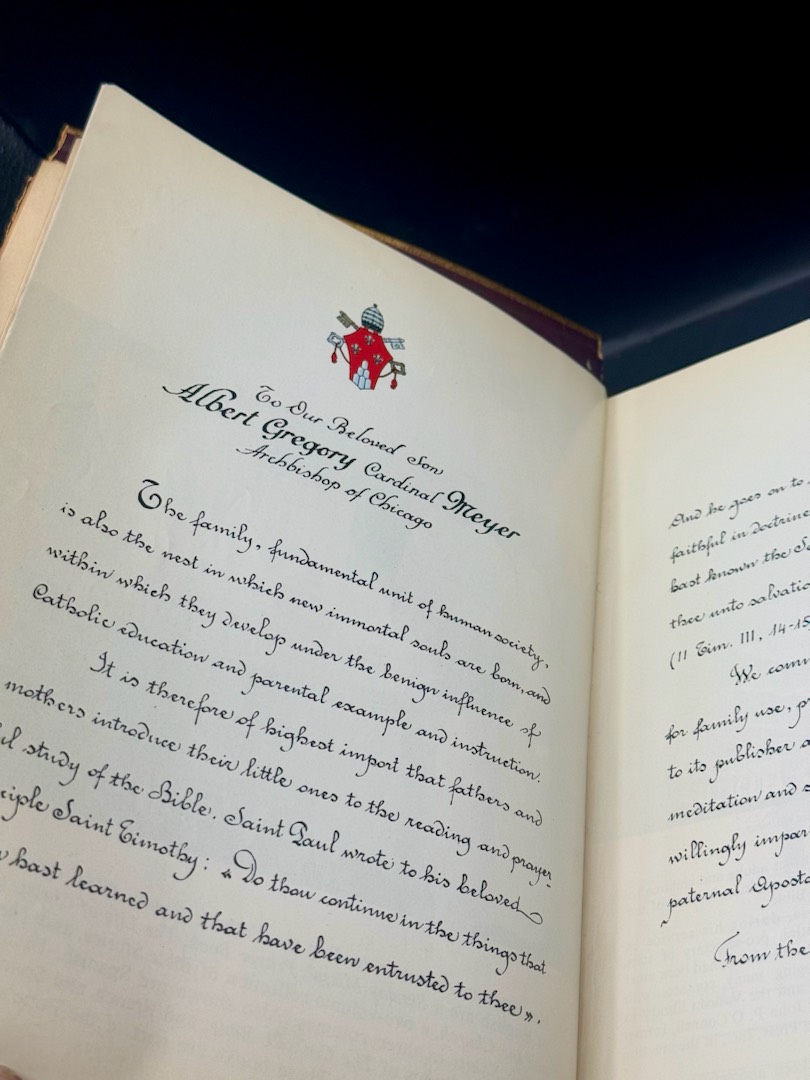 To Our Beloved Son
Albert Gregory Cardinal Meyer
Archbishop of Chicago
The family, fundamental unit of human society,
is also the nest in which new immortal souls are born, and
within which they develop under the benign influence of
Catholic education and parental example and instruction.
It is therefore of highest import that fathers and
mothers introduce their little ones to the reading and prayer-
ul study of the Bible. Saint Paul wrote to his beloved
ciple Saint Timothy: «Do thou continue in the things that
hast learned and that have been entrusted to thee».
And he goes on to
faithful in doctrine
hast known the
thee unto salvation
(II Tim. III, 14-15
We
for family use,
to its publisher
meditation and
willingly
paternal
From the